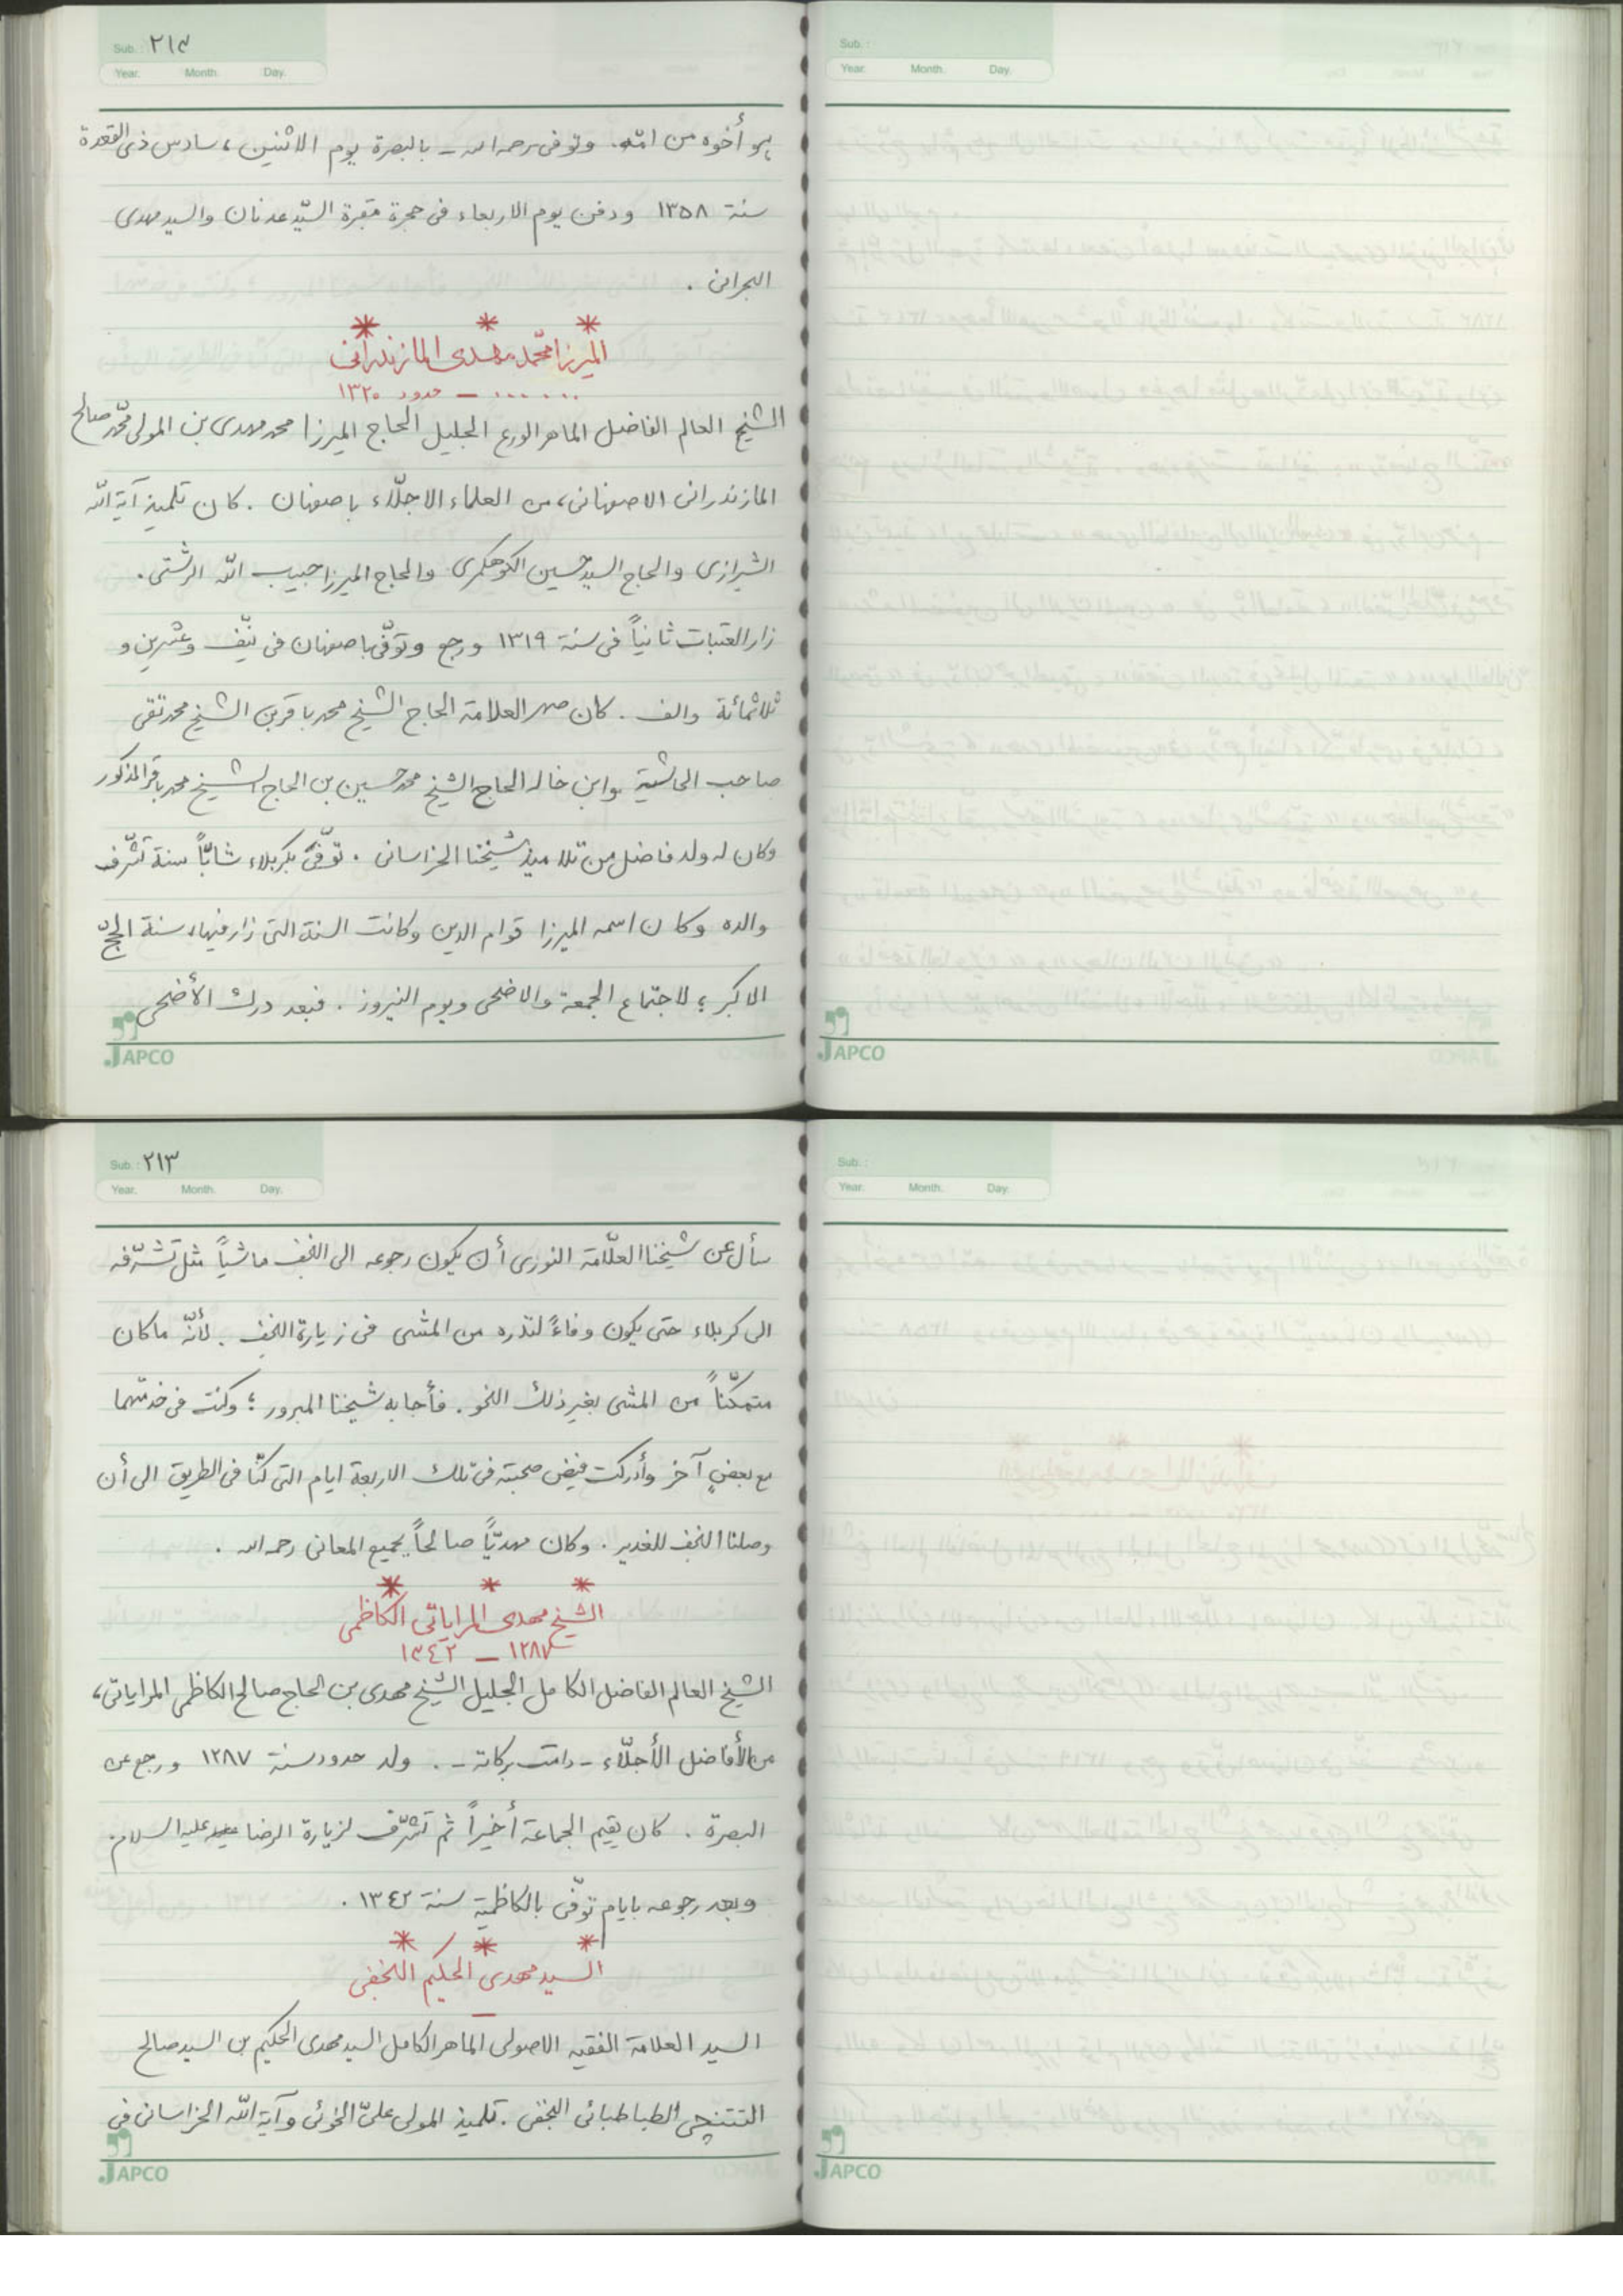 Sub.: ٢١٢
Year. Month. Day.
هو أخوه من امّه. وتوفى رحمه الله - بالبصرة يوم الاثنين، سادس ذى القعدة
سنة ١٣٥٨ ودفن يوم الاربعاء فى حجرة مقبرة السيّد عدنان والسيد مهدى
البحرانى .
* * *
الميرزا محمّد مهدى المازندرانى
...... — حدود ١٣٢٠
الشيخ العالم الفاضل الماهر الورع الجليل الحاج الميرزا محمد مهدى بن المولى محمّد صالح
المازندرانى الاصفهانى، من العلماء الاجلّاء باصفهان . كان تلميذ آية اللّه
الشيرازى والحاج السيد حسين الكوهكمرى والحاج الميرزا حبيب اللّه الرشتى .
زار العتبات ثانياً فى سنة ١٣١٩ ورجع وتوفّى باصفهان فى نيّف وعشرين و
ثلاثمائة والف . كان صهر العلامة الحاج الشيخ محمد باقر بن الشيخ محمد تقى
صاحب الحاشية وابن خاله الحاج الشيخ محمد حسين بن الحاج الشيخ محمد باقر المذكور
وكان له ولد فاضل من تلاميذ شيخنا الخراسانى . توفّى بكربلاء شابّاً سنة تشرّف
والده وكان اسمه الميرزا قوام الدين وكانت السنة التى زار فيها، سنة الحجّ
الاكبر ؛ لاجتماع الجمعة والاضحى ويوم النيروز . فبعد درك الأضحى
JAPCO
Sub.:
Year. Month. Day.
JAPCO
Sub.: ٢١٣
Year. Month. Day.
سأل عن شيخنا العلّامة النورى أن يكون رجوعه الى النجف ماشياً مثل تشرّفه
الى كربلاء حتى يكون وفاءً لنذره من المشى فى زيارة النجف . لأنّه ما كان
متمكّناً من المشى بغير ذلك النحو . فأجابه شيخنا المبرور ؛ وكنت فى خدمتهما
مع بعضٍ آخر وأدركت فيض صحبته فى تلك الاربعة ايام التى كنّا فى الطريق الى أن
وصلنا النجف للغدير . وكان مهديّاً صالحاً بجميع المعانى رحمه الله .
* * *
الشيخ مهدى المراياتى الكاظمى
١٢٨٧ — ١٣٤٢
الشيخ العالم الفاضل الكامل الجليل الشيخ مهدى بن الحاج صالح الكاظمى المراياتى،
من الأفاضل الأجلّاء - دامت بركاته - . ولد حدود سنة ١٢٨٧ ورجع عن
البصرة . كان يقيم الجماعة أخيراً ثم تشرّف لزيارة الرضا عليه السلام .
وبعد رجوعه بايام توفّى بالكاظمية سنة ١٣٤٢ .
* * *
السيد مهدى الحكيم النجفى
—
السيد العلامة الفقيه الاصولى الماهر الكامل السيد مهدى الحكيم بن السيد صالح
التتنچى الطباطبائى النجفى . تلميذ المولى علىّ الخوئى وآية اللّه الخراسانى فى
JAPCO
Sub.:
Year. Month. Day.
JAPCO